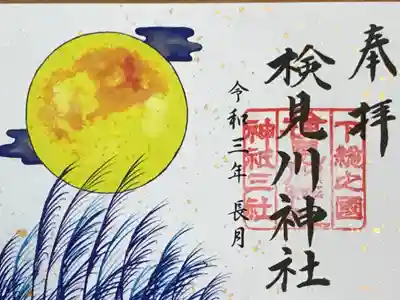 奉拝
下総之國
検見川神社
神社三社
令和三年 長月